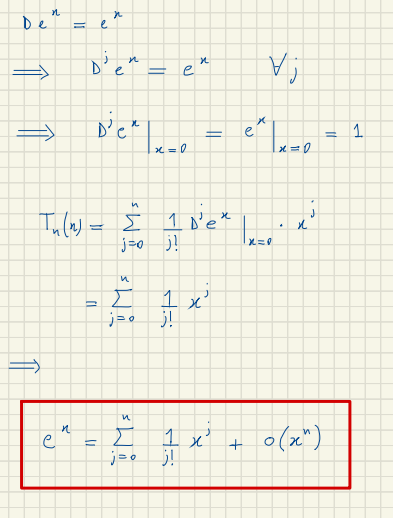 D eˣ = eˣ
⟹ Dʲ eˣ = eˣ ∀ j
⟹ Dʲ eˣ |ₓ₌₀ = eˣ |ₓ₌₀ = 1
Tₙ(x) = ∑_{j=0}^{n} 1/j! Dʲ eˣ |ₓ₌₀ · xʲ
= ∑_{j=0}^{n} 1/j! xʲ
⟹
eˣ = ∑_{j=0}^{n} 1/j! xʲ + o(xⁿ)